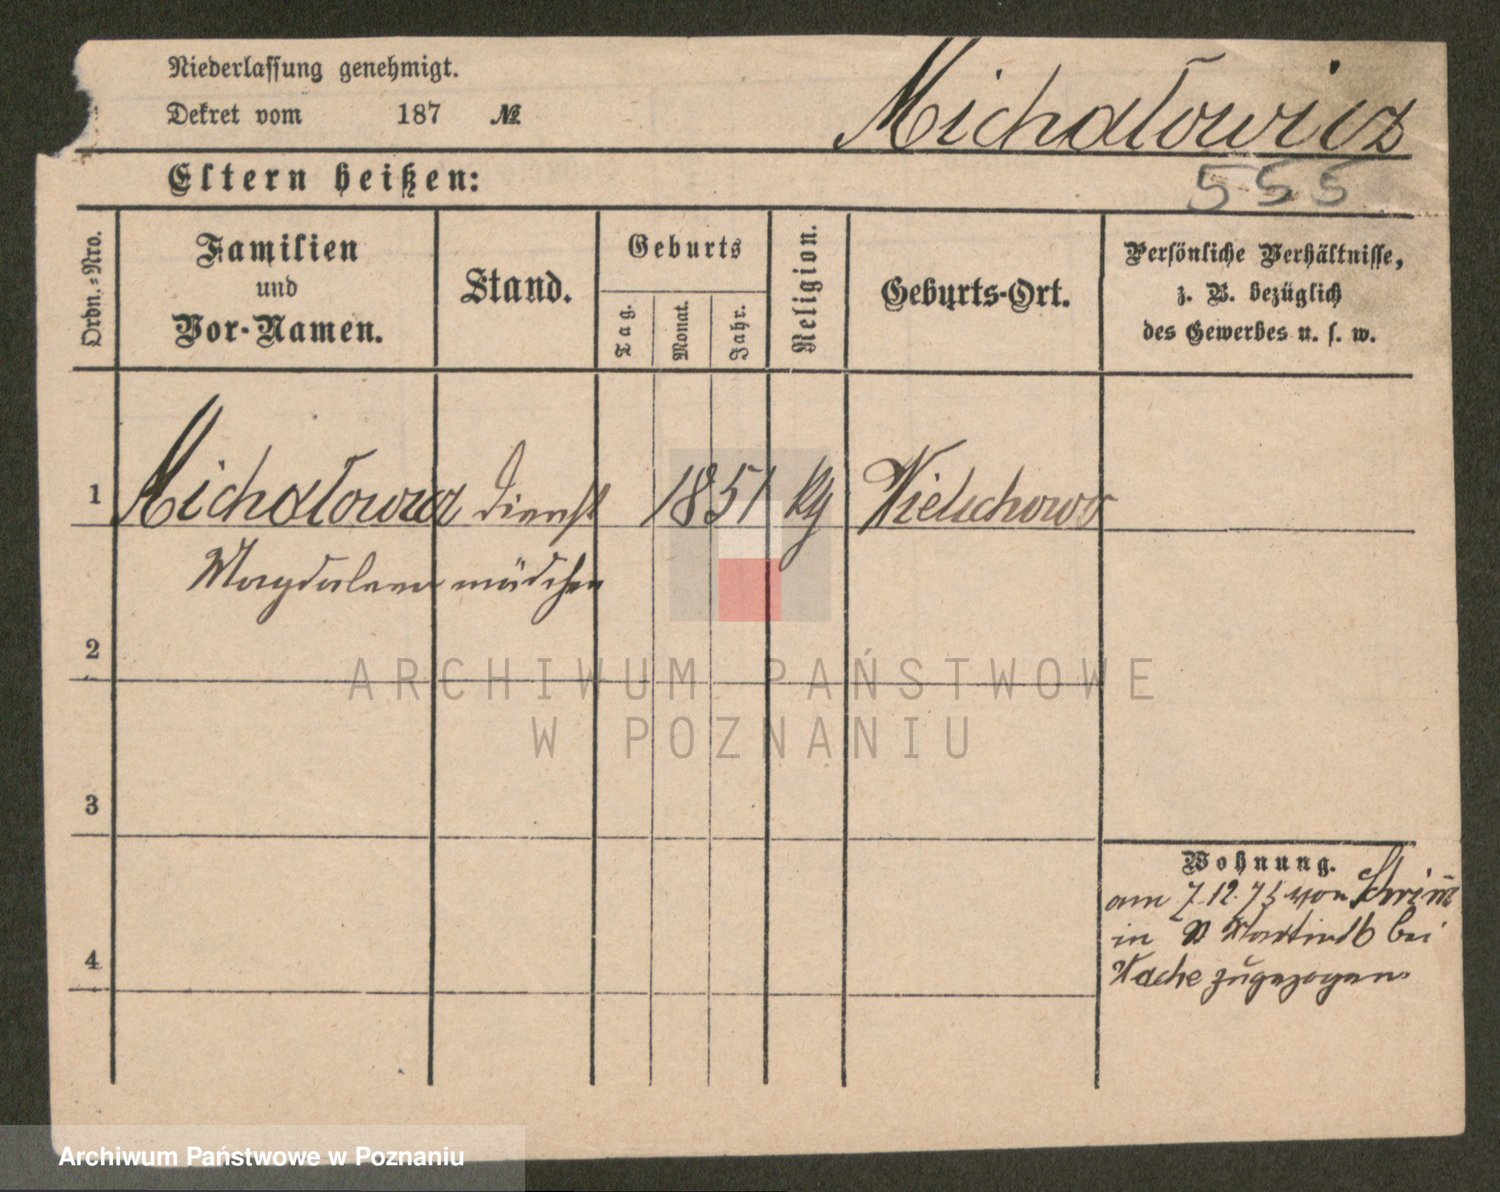 Niederlassung genehmigt.
Dekret vom 187 №
Michałowicz
Eltern heißen:
555
Ordn.-Nro.
Familien
und
Vor-Namen.
Stand.
Geburts
Tag.
Monat.
Jahr.
Religion.
Geburts-Ort.
Persönliche Verhältnisse,
z. B. bezüglich
des Gewerbes u. s. w.
1 Michałowicz Dienst 1851 Wielichowo
Magdalena mädchen
2
ARCHIWUM PAŃSTWOWE
W POZNANIU
3
Wohnung.
am 7.12.75 von Schrimm
in bei
zugezogen.
4
Archiwum Państwowe w Poznaniu